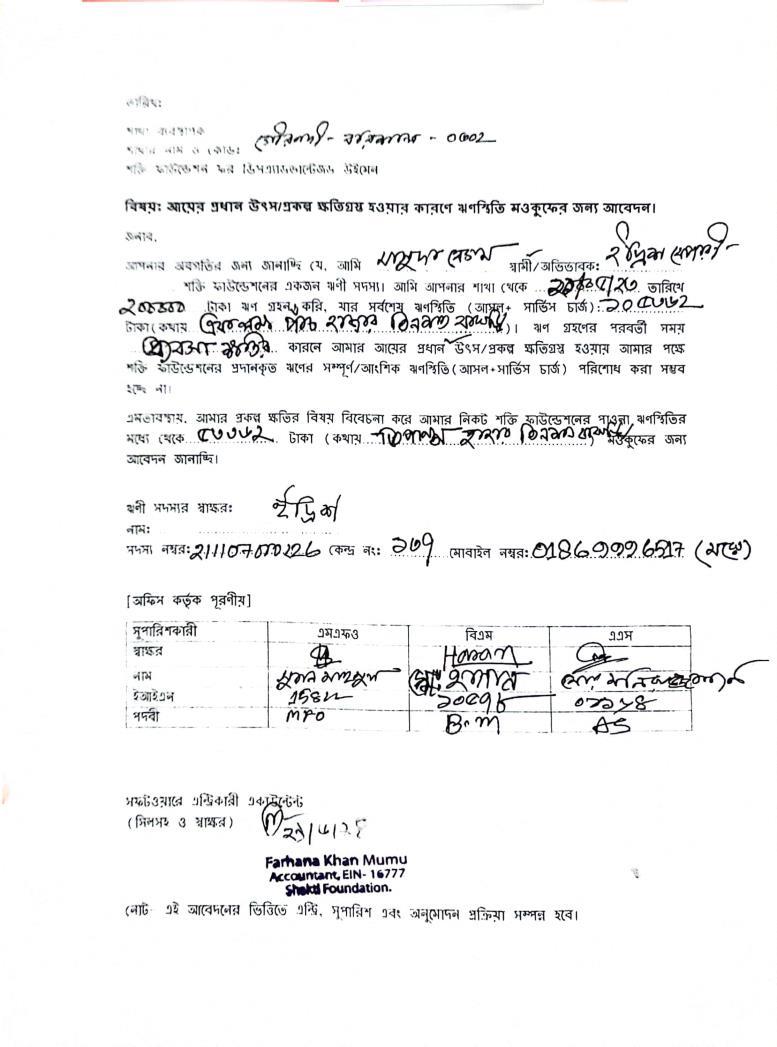 তারিখ:
শাখা ব্যবস্থাপক
শাখার নাম ও কোড: গৌরনদী - বরিশাল - ০৩০২
শক্তি ফাউন্ডেশন ফর ডিসএ্যাডভান্টেজড উইমেন
বিষয়: আয়ের প্রধান উৎস/প্রকল্প ক্ষতিগ্রস্থ হওয়ার কারণে ঋণস্থিতি মওকুফের জন্য আবেদন।
জনাব,
আপনার অবগতির জন্য জানাচ্ছি যে, আমি মাসুদা বেগম স্বামী/অভিভাবক: ইদ্রিস বেপারী
শক্তি ফাউন্ডেশনের একজন ঋণী সদস্য। আমি আপনার শাখা থেকে তারিখে
২০০০০০ টাকা ঋণ গ্রহন করি, যার সর্বশেষ ঋণস্থিতি (আসল+ সার্ভিস চার্জ): ১০৫৩৬২
টাকা (কথায় একলক্ষ পাঁচ হাজার তিনশত বাষট্টি)। ঋণ গ্রহণের পরবর্তী সময়
ব্যবসা ক্ষতির কারনে আমার আয়ের প্রধান উৎস/প্রকল্প ক্ষতিগ্রস্থ হওয়ায় আমার পক্ষে
শক্তি ফাউন্ডেশনের প্রদানকৃত ঋণের সম্পূর্ণ/আংশিক ঋণস্থিতি (আসল+সার্ভিস চার্জ) পরিশোধ করা সম্ভব
হচ্ছে না।
এমতাবস্থায়, আমার প্রকল্প ক্ষতির বিষয় বিবেচনা করে আমার নিকট শক্তি ফাউন্ডেশনের পাওনা ঋণস্থিতির
মধ্যে থেকে ৫৩৩৬২ টাকা (কথায় তিপান্ন হাজার তিনশত বাষট্টি) মওকুফের জন্য
আবেদন জানাচ্ছি।
ঋণী সদস্যর স্বাক্ষর: ইদ্রিস
নাম:
সদস্য নম্বর: কেন্দ্র নং: ১৩৭ মোবাইল নম্বর:
[অফিস কর্তৃক পূরণীয়]
সুপারিশকারী এমএফও বিএম এএস
স্বাক্ষর Hasan
নাম মোঃ হাসান
ইআইএন
পদবী MFO B.M AS
সফটওয়ারে এন্ট্রিকারী একাউন্টেন্ট
(সিলসহ ও স্বাক্ষর)
Farhana Khan Mumu
Accountant, EIN- 16777
Shakti Foundation.
নোট- এই আবেদনের ভিত্তিতে এন্ট্রি, সুপারিশ এবং অনুমোদন প্রক্রিয়া সম্পন্ন হবে।